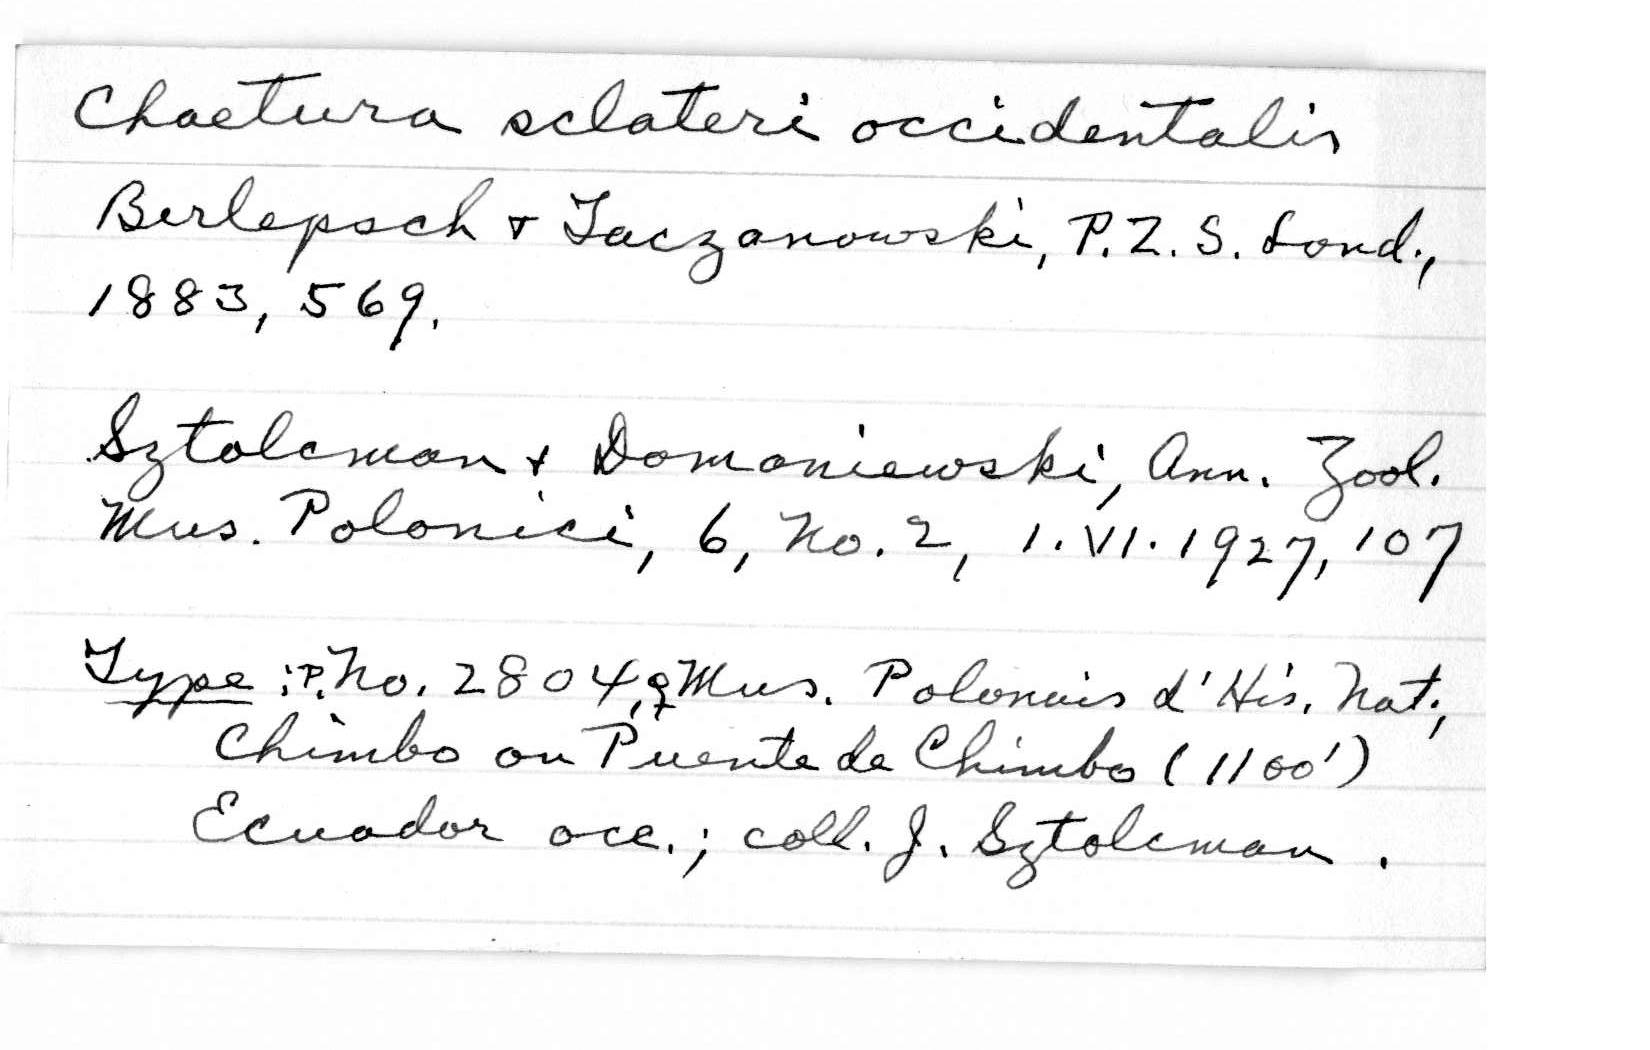 Chaetura sclateri occidentalis
Berlepsch & Taczanowski, P.Z.S. Lond.,
1883, 569.
Sztolcman & Domaniewski, Ann. Zool.
Mus. Polonici, 6, No. 2, 1.VI.1927, 107
Type: P. No. 2804, ♀ Mus. Polonais d'His. Nat.,
Chimbo ou Puente de Chimbo (1100')
Ecuador occ.; coll. J. Sztolcman.